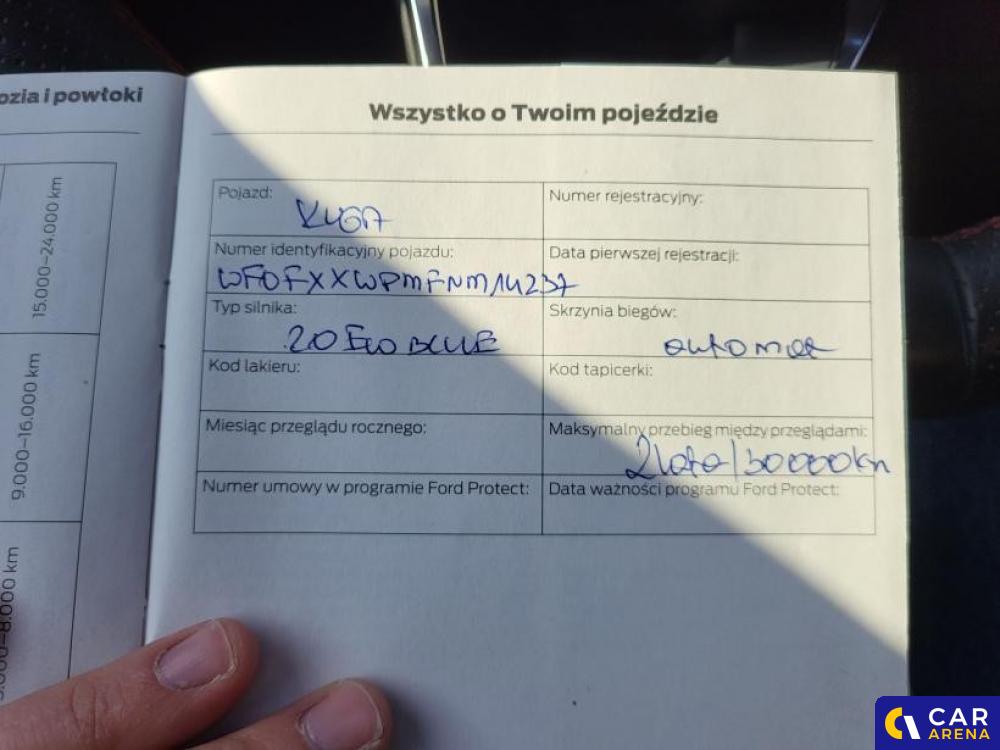 ozia i powłoki
15.000–24.000 km
9.000–16.000 km
8.000 km
Wszystko o Twoim pojeździe
Pojazd:
KUGA
Numer rejestracyjny:
Numer identyfikacyjny pojazdu:
WF0FXXWPMFNM14237
Data pierwszej rejestracji:
Typ silnika:
2.0 ECOBLUE
Skrzynia biegów:
automat
Kod lakieru:
Kod tapicerki:
Miesiąc przeglądu rocznego:
Maksymalny przebieg między przeglądami:
2 lata/30000km
Numer umowy w programie Ford Protect:
Data ważności programu Ford Protect:
CAR
ARENA